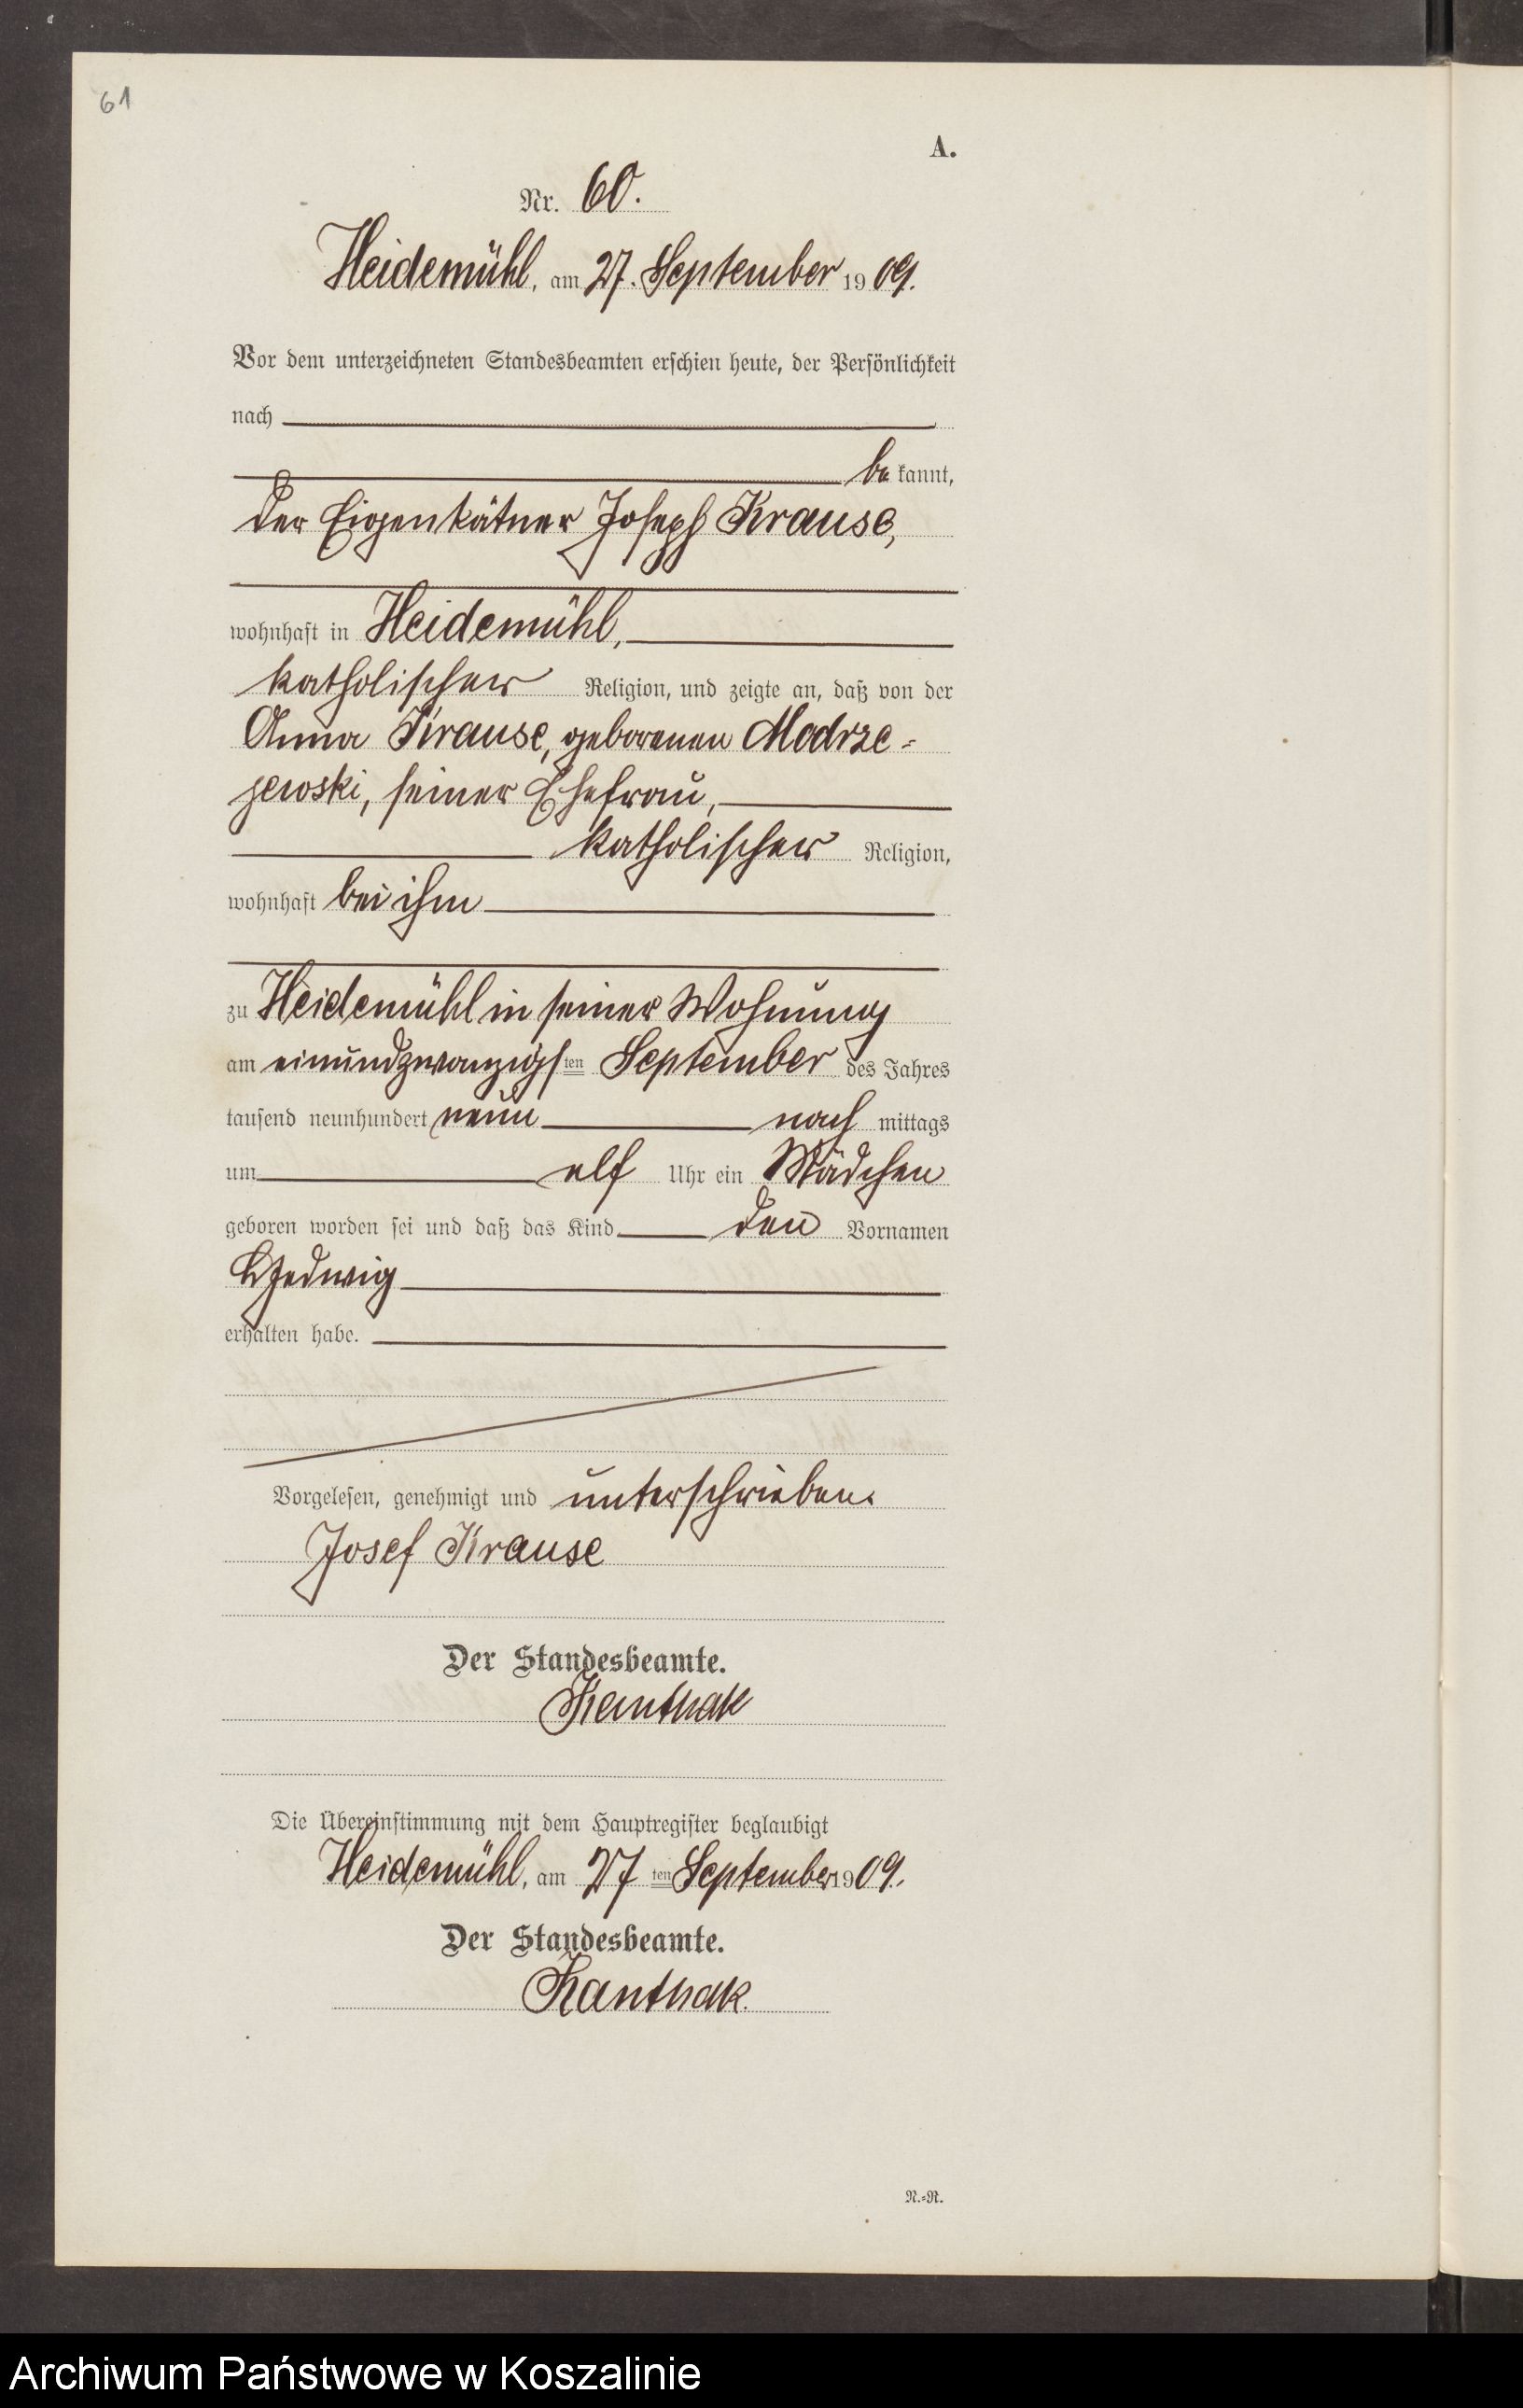 61
A.
Nr. 60.
Heidemühl, am 27. September 1909.
Vor dem unterzeichneten Standesbeamten erschien heute, der Persönlichkeit
nach
be kannt,
der Eigenkätner Joseph Krause,
wohnhaft in Heidemühl,
katholischer Religion, und zeigte an, daß von der
Anna Krause, geborenen Modrze-
jewski, seiner Ehefrau,
katholischer Religion,
wohnhaft bei ihm
zu Heidemühl in seiner Wohnung
am einundzwanzigsten September des Jahres
tausend neunhundert neun nach mittags
um elf Uhr ein Mädchen
geboren worden sei und daß das Kind den Vornamen
Hedwig
erhalten habe.
Vorgelesen, genehmigt und unterschrieben.
Josef Krause
Der Standesbeamte.
Kanthak
Die Übereinstimmung mit dem Hauptregister beglaubigt
Heidemühl, am 27ten September 1909.
Der Standesbeamte.
Kanthak.
N.-R.
Archiwum Państwowe w Koszalinie